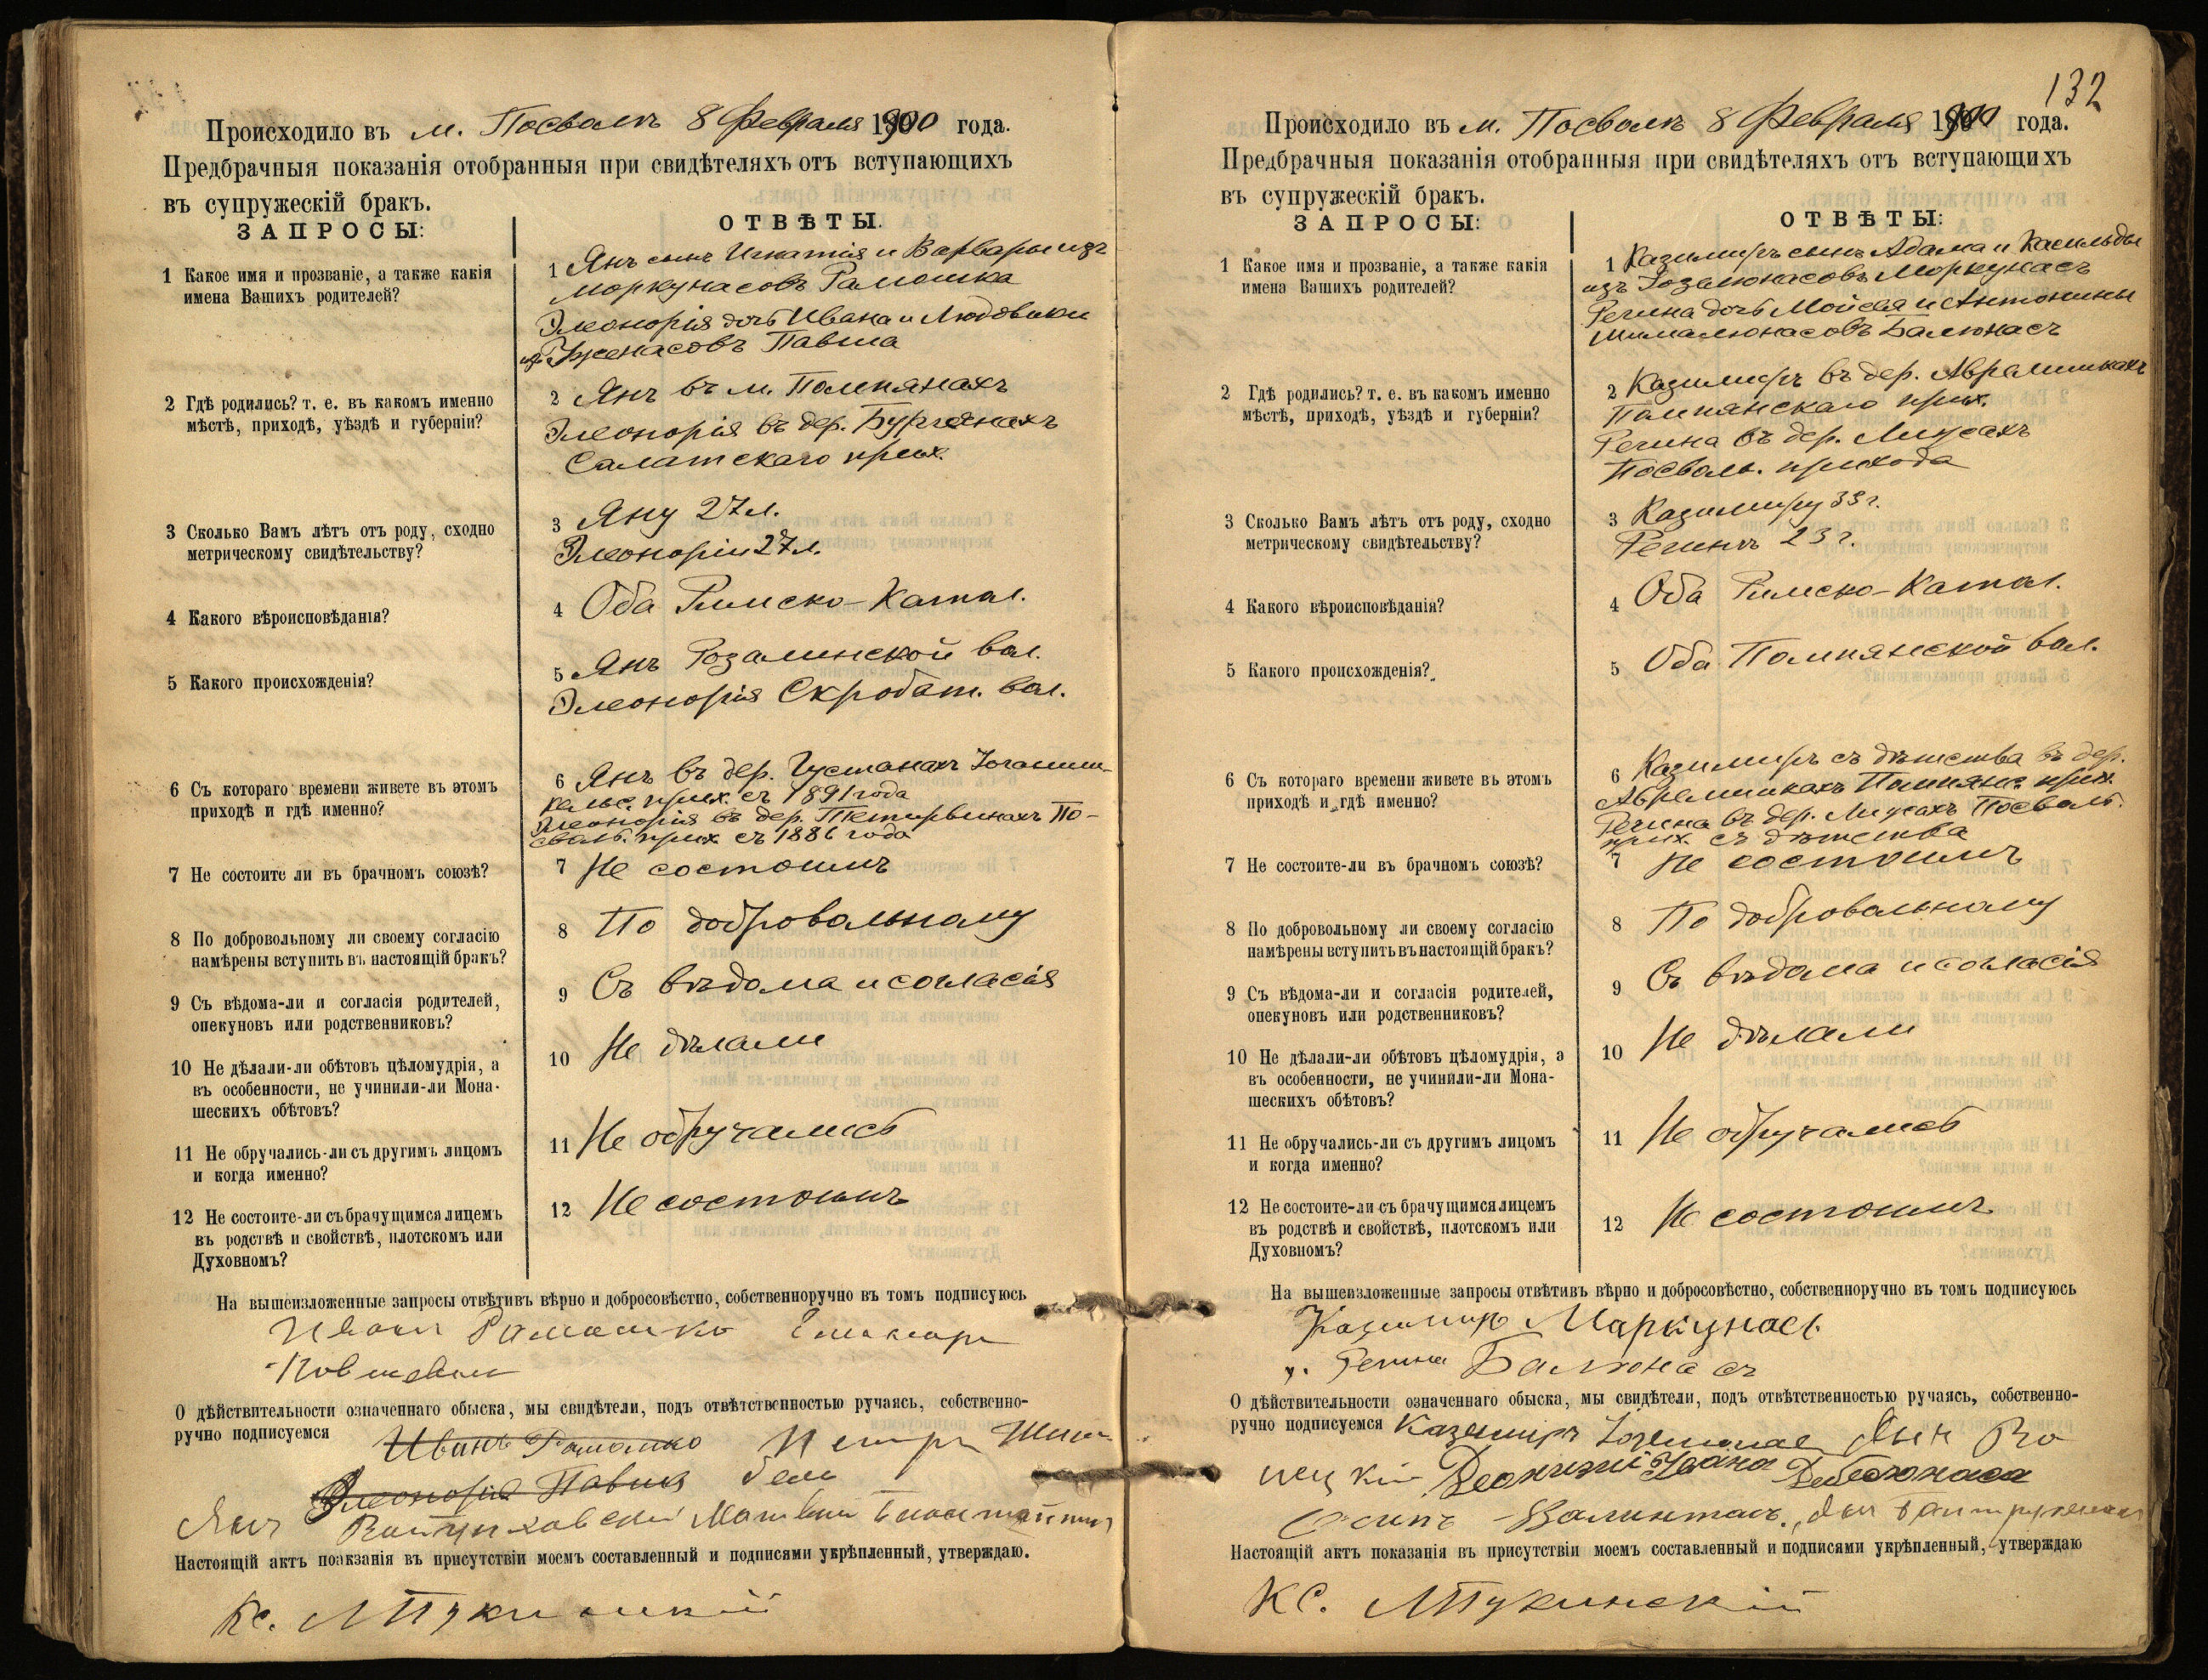 Происходило въ м. Посволѣ 8 Февраля 1900 года.
Предбрачныя показанія отобранныя при свидѣтеляхъ отъ вступающихъ
въ супружескій бракъ.
ЗАПРОСЫ:
ОТВѢТЫ.
1 Какое имя и прозваніе, а также какія
имена Вашихъ родителей?
1 Янъ сынъ Игнатія и Варвары изъ
Моркунасовъ Рамошка
Элеонорія дочь Ивана и Людовики
Павша
2 Гдѣ родились? т. е. въ какомъ именно
мѣстѣ, приходѣ, уѣздѣ и губерніи?
2 Янъ въ м. Помпянахъ
Элеонорія въ дер.
Салатскаго прих.
3 Сколько Вамъ лѣтъ отъ роду, сходно
метрическому свидѣтельству?
3 Яну 27 л.
Элеоноріи 27 л.
4 Какого вѣроисповѣданія?
4 Оба Римско-Катол.
5 Какого происхожденія?
5 Янъ Розалинской вол.
Элеонорія Скробот. вол.
6 Съ котораго времени живете въ этомъ
приходѣ и гдѣ именно?
6 Янъ въ дер. Густанахъ Іоганиш-
кельс. прих. съ 1891 года
Элеонорія въ дер. По-
свол. прих. съ 1886 года
7 Не состоите ли въ брачномъ союзѣ?
7 Не состоимъ
8 По добровольному ли своему согласію
намѣрены вступить въ настоящій бракъ?
8 По добровольному
9 Съ вѣдома-ли и согласія родителей,
опекуновъ или родственниковъ?
9 Съ вѣдома и согласія
10 Не дѣлали-ли обѣтовъ цѣломудрія, а
въ особенности, не учинили-ли Мона-
шескихъ обѣтовъ?
10 Не дѣлали
11 Не обручались-ли съ другимъ лицомъ
и когда именно?
11 Не обручались
12 Не состоите-ли съ брачущимся лицемъ
въ родствѣ и свойствѣ, плотскомъ или
Духовномъ?
12 Не состоимъ
На вышеизложенные запросы отвѣтивъ вѣрно и добросовѣстно, собственноручно въ томъ подписуюсь
Рамошко
О дѣйствительности означеннаго обыска, мы свидѣтели, подъ отвѣтственностью ручаясь, собственно-
ручно подписуемся Иванъ Рамошко Петръ
Элеонорія Павша
Янъ
Настоящій актъ поакзанія въ присутствіи моемъ составленный и подписями укрѣпленный, утверждаю.
Кс.
132
Происходило въ м. Посволѣ 8 Февраля 1900 года.
Предбрачныя показанія отобранныя при свидѣтеляхъ отъ вступающихъ
въ супружескій бракъ.
ЗАПРОСЫ:
ОТВѢТЫ:
1 Какое имя и прозваніе, а также какія
имена Вашихъ родителей?
1 Казимиръ сынъ Адама и Касильды
изъ Моркунасъ
Регина дочь Мойсея и Антонины
Шималюнасовъ Балюнасъ
2 Гдѣ родились? т. е. въ какомъ именно
мѣстѣ, приходѣ, уѣздѣ и губерніи?
2 Казимиръ въ дер. Аврамишкахъ
Помпянскаго прих.
Регина въ дер.
Посволь. прихода
3 Сколько Вамъ лѣтъ отъ роду, сходно
метрическому свидѣтельству?
3 Казимиру 33 г.
Регинѣ 23 г.
4 Какого вѣроисповѣданія?
4 Оба Римско-Катол.
5 Какого происхожденія?
5 Оба Помпянской вол.
6 Съ котораго времени живете въ этомъ
приходѣ и гдѣ именно?
6 Казимиръ съ дѣтства въ дер.
Аврамишкахъ Помпянс. прих.
Регина въ дер. Посволь.
прих. съ дѣтства
7 Не состоите-ли въ брачномъ союзѣ?
7 Не состоимъ
8 По добровольному ли своему согласію
намѣрены вступить въ настоящій бракъ?
8 По добровольному
9 Съ вѣдома-ли и согласія родителей,
опекуновъ или родственниковъ?
9 Съ вѣдома и согласія
10 Не дѣлали-ли обѣтовъ цѣломудрія, а
въ особенности, не учинили-ли Мона-
шескихъ обѣтовъ?
10 Не дѣлали
11 Не обручались-ли съ другимъ лицомъ
и когда именно?
11 Не обручались
12 Не состоите-ли съ брачущимся лицемъ
въ родствѣ и свойствѣ, плотскомъ или
Духовномъ?
12 Не состоимъ
На вышеизложенные запросы отвѣтивъ вѣрно и добросовѣстно, собственноручно въ томъ подписуюсь
Казимиръ Маркунасъ
Регина Балюнасъ
О дѣйствительности означеннаго обыска, мы свидѣтели, подъ отвѣтственностью ручаясь, собственно-
ручно подписуемся Казимиръ
Осипъ
Настоящій актъ показанія въ присутствіи моемъ составленный и подписями укрѣпленный, утверждаю
Кс.